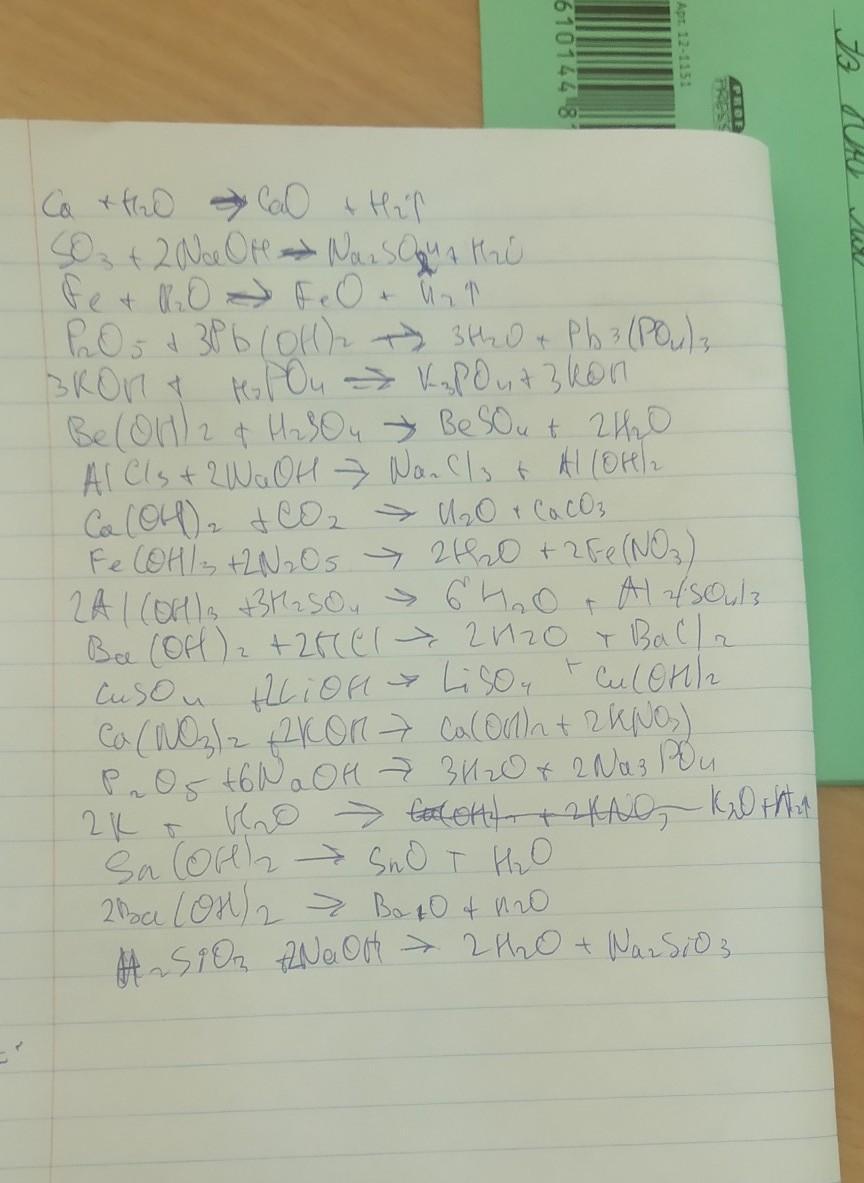 6101448
Арт. 12-1151
Ca + H₂O → CaO + H₂↑
SO₃ + 2NaOH → Na₂SO₄ + H₂O
Fe + H₂O → FeO + H₂↑
P₂O₅ + 3Pb(OH)₂ → 3H₂O + Pb₃(PO₄)₃
3KOH + H₃PO₄ → K₃PO₄ + 3KOH
Be(OH)₂ + H₂SO₄ → BeSO₄ + 2H₂O
AlCl₃ + 2NaOH → Na₂Cl₃ + Al(OH)₂
Ca(OH)₂ + CO₂ → H₂O + CaCO₃
Fe(OH)₃ + 2N₂O₅ → 2H₂O + 2Fe(NO₃)
2Al(OH)₃ + 3H₂SO₄ → 6H₂O + Al₂(SO₄)₃
Ba(OH)₂ + 2HCl → 2H2O + BaCl₂
CuSO₄ + 2LiOH → LiSO₄ + Cu(OH)₂
Ca(NO₃)₂ + 2KOH → Ca(OH)₂ + 2KNO₃)
P₂O₅ + 6NaOH → 3H₂O + 2Na₃PO₄
2K + H₂O → K₂O + H₂↑
Sn(OH)₂ → SnO + H₂O
2Ba(OH)₂ → Ba₂O + H₂O
H₂SiO₃ + 2NaOH → 2H₂O + Na₂SiO₃